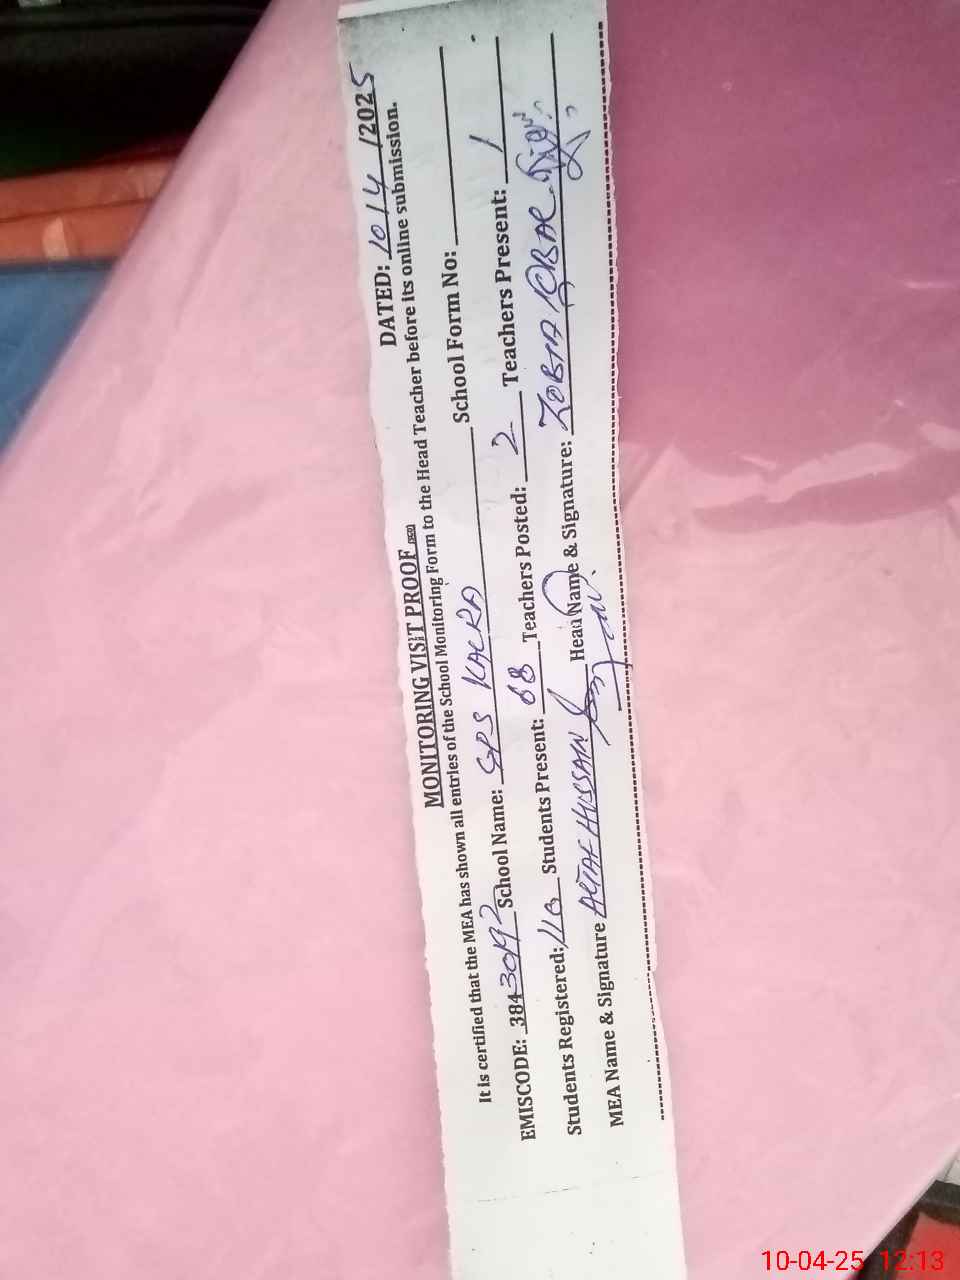 MONITORING VISIT PROOF DATED: 10/4/2025
It is certified that the MEA has shown all entries of the School Monitoring Form to the Head Teacher before its online submission.
EMISCODE: 38430192 School Name: GPS KALRA School Form No:
Students Registered: 110 Students Present: 68 Teachers Posted: 2 Teachers Present: 1
MEA Name & Signature ALTAF HUSSAIN Head Name & Signature: ZOBIA IQBAL
10-04-25 12:13